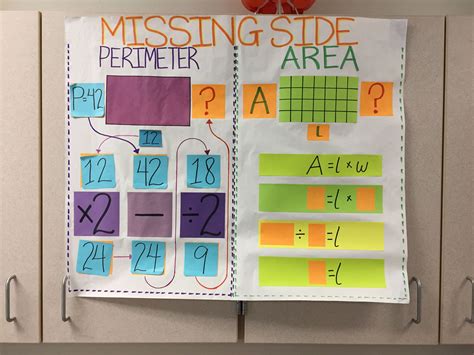 MISSING SIDE
PERIMETER
P=42
?
12
12 42 18
×2 − ÷2
24 24 9
AREA
A
?
L
A=l×w
=l×
÷ =l
=l